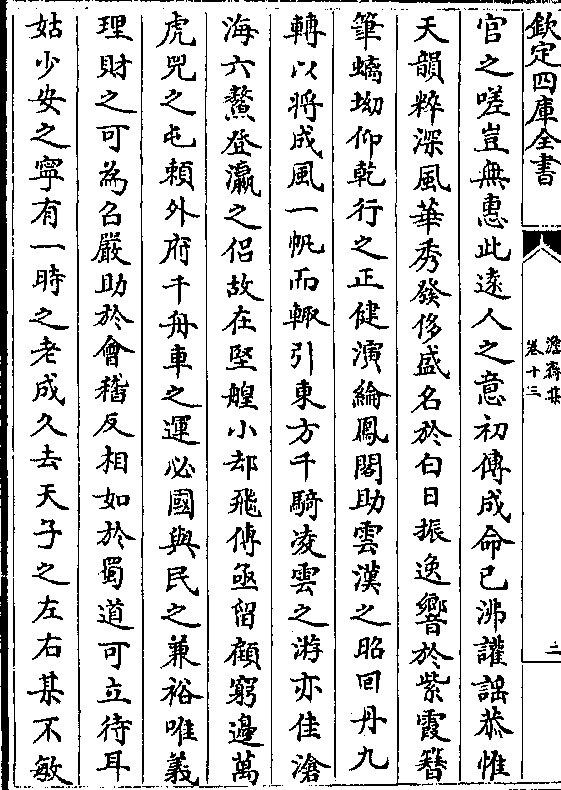 欽定四庫全書
澹齋集
卷十三
二
官之嗟豈無惠此遠人之意初傳成命已沸讙謡恭惟
天韻粹深風華秀發侈盛名於白日振逸響於紫霞簪
筆螭坳仰乾行之正健演綸鳳閣助雲漢之昭回丹九
轉以将成風一帆而輙引東方千騎凌雲之游亦佳滄
海六鰲登瀛之侣故在堅艎小却飛傳亟留顧窮邉萬
虎兕之屯頼外府千舟車之運必國與民之兼裕唯義
理財之可為召嚴助於會稽反相如於蜀道可立待耳
姑少安之寧有一時之老成久去天子之左右某不敏